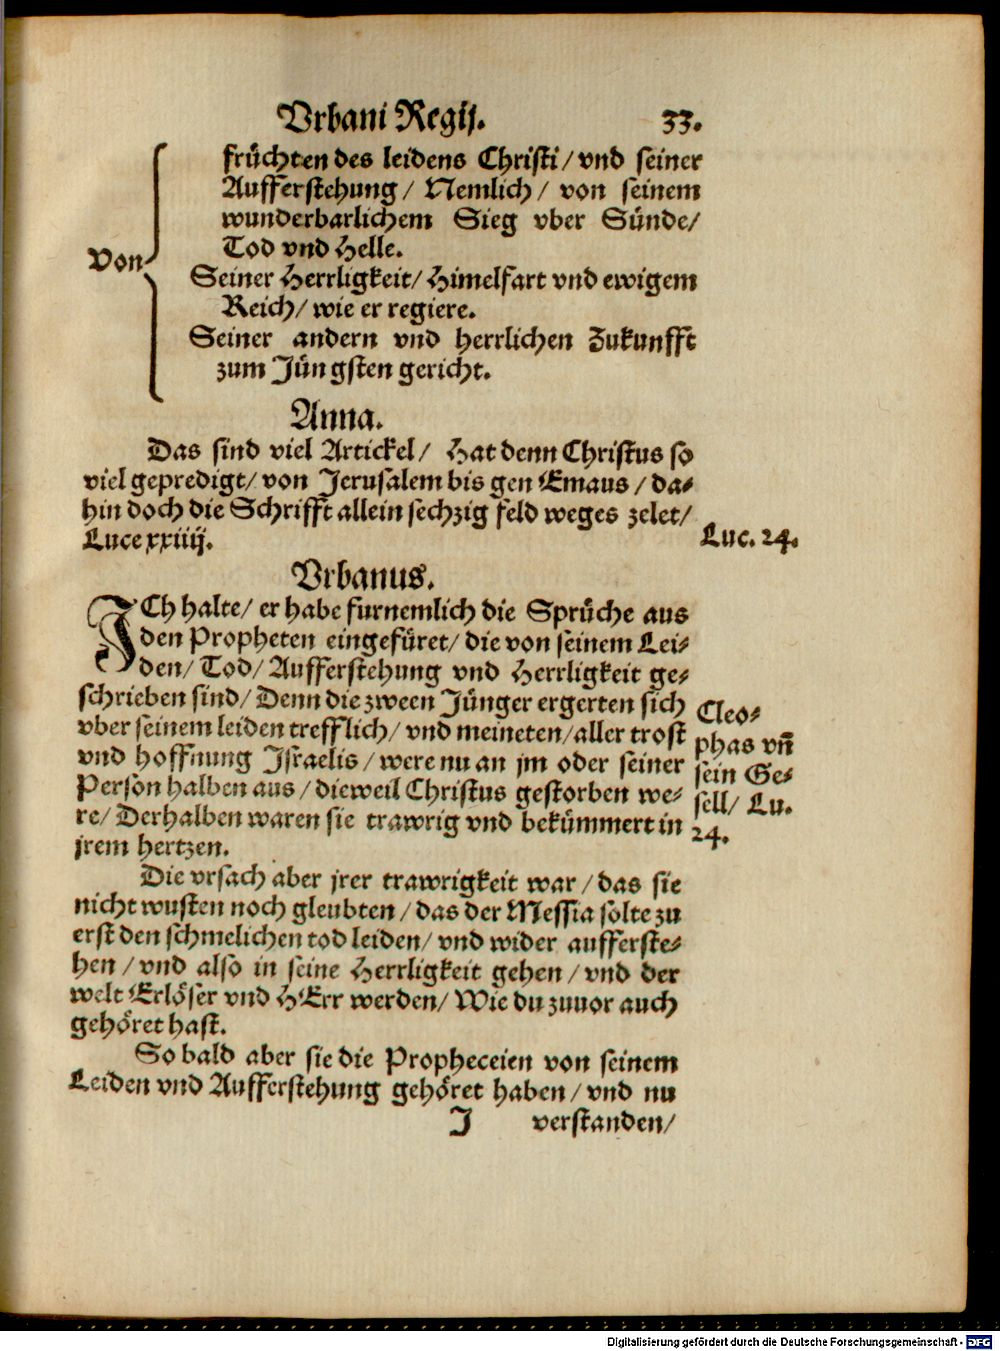 Vrbani Regij. 33.
früchten des leidens Christi/ vnd seiner
Aufferstehung/ Nemlich/ von seinem
wunderbarlichem Sieg vber Sünde/
Tod vnd Helle.
Von
Seiner Herrligkeit/ Himelfart vnd ewigem
Reich/ wie er regiere.
Seiner andern vnd herrlichen Zukunfft
zum Jüngsten gericht.
Anna.
Das sind viel Artickel/ Hat denn Christus so
viel gepredigt/ von Jerusalem bis gen Emaus/ da-
hin doch die Schrifft allein sechzig feld weges zelet/
Luce xxiiij.
Luc. 24.
Vrbanus.
JCh halte/ er habe furnemlich die Sprüche aus
den Propheten eingefüret/ die von seinem Lei-
den/ Tod/ Aufferstehung vnd Herrligkeit ge-
schrieben sind/ Denn die zween Jünger ergerten sich
vber seinem leiden trefflich/ vnd meineten/ aller trost
vnd hoffnung Jsraelis/ were nu an jm oder seiner
Person halben aus/ dieweil Christus gestorben we-
re/ Derhalben waren sie trawrig vnd bekümmert in
jrem hertzen.
Cleo-
phas vñ
sein Ge-
sell/ Lu.
24.
Die vrsach aber jrer trawrigkeit war/ das sie
nicht wusten noch gleubten/ das der Messia solte zu
erst den schmelichen tod leiden/ vnd wider aufferste-
hen/ vnd also in seine Herrligkeit gehen/ vnd der
welt Erlöser vnd HErr werden/ Wie du zuuor auch
gehöret hast.
So bald aber sie die Propheceien von seinem
Leiden vnd Aufferstehung gehöret haben/ vnd nu
J verstanden/
Digitalisierung gefördert durch die Deutsche Forschungsgemeinschaft - DFG